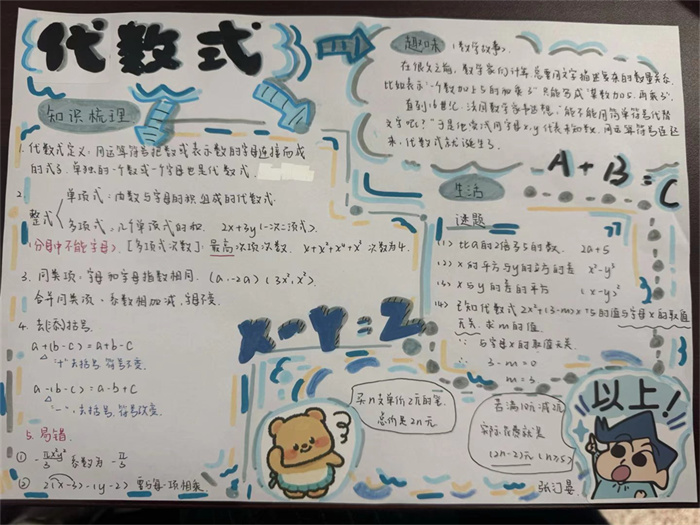 代数式
知识梳理
1.代数式定义:用运算符号把数或表示数的字母连接而成
的式子.单独的一个数或一个字母也是代数式.
2.
整式
单项式:由数与字母的积组成的代数式.
多项式:几个单项式的
2x+3y(一次二项式).
(分母中不能字母).[多项式次数]:最高次项次数.
次数为4.
3.同类项:字母和字母指数相同.(a,-2a)(3x²,x²)
合并同类项:系数相加减,字母不变.
4.去括号.
a+(b-c)=a+b-c
"+"去括号 符号不变.
a-(b-c)=a-b+c
"-"去括号,符号改变.
5.易错.
① 系数为
② 2(x-3)-(y-2) 要与每一项相乘.
趣味(数学故事).
在很久之前,数学家们计算总要用文字描述
数量关系,
比如表示"一个数加上5的和乘3"只能写成"某数加5,再乘3",
直到16世纪,法国数学家韦达想:"能不能用简单符号代替
文字呢?"于是他尝试用字母x,y代表未知数,用运算符号连起
来,代数式就诞生了.
A+B=C
生活
谜题
(1)比a的2倍多5的数. 2a+5
(2)x的平方与y的平方的差 x²-y²
x与y的差的平方 (x-y)²
(4)已知代数式2x²+(3-m)x+5的值与字母x的取值
无关.求m的值.
∵与字母x的取值无关.
∴ 3-m=0
m=3
X-Y=Z
买n支单价2元的笔.
总价是2n元
若满10元减2元
实际花费就是
(2n-2)元(n≥5)
以上!